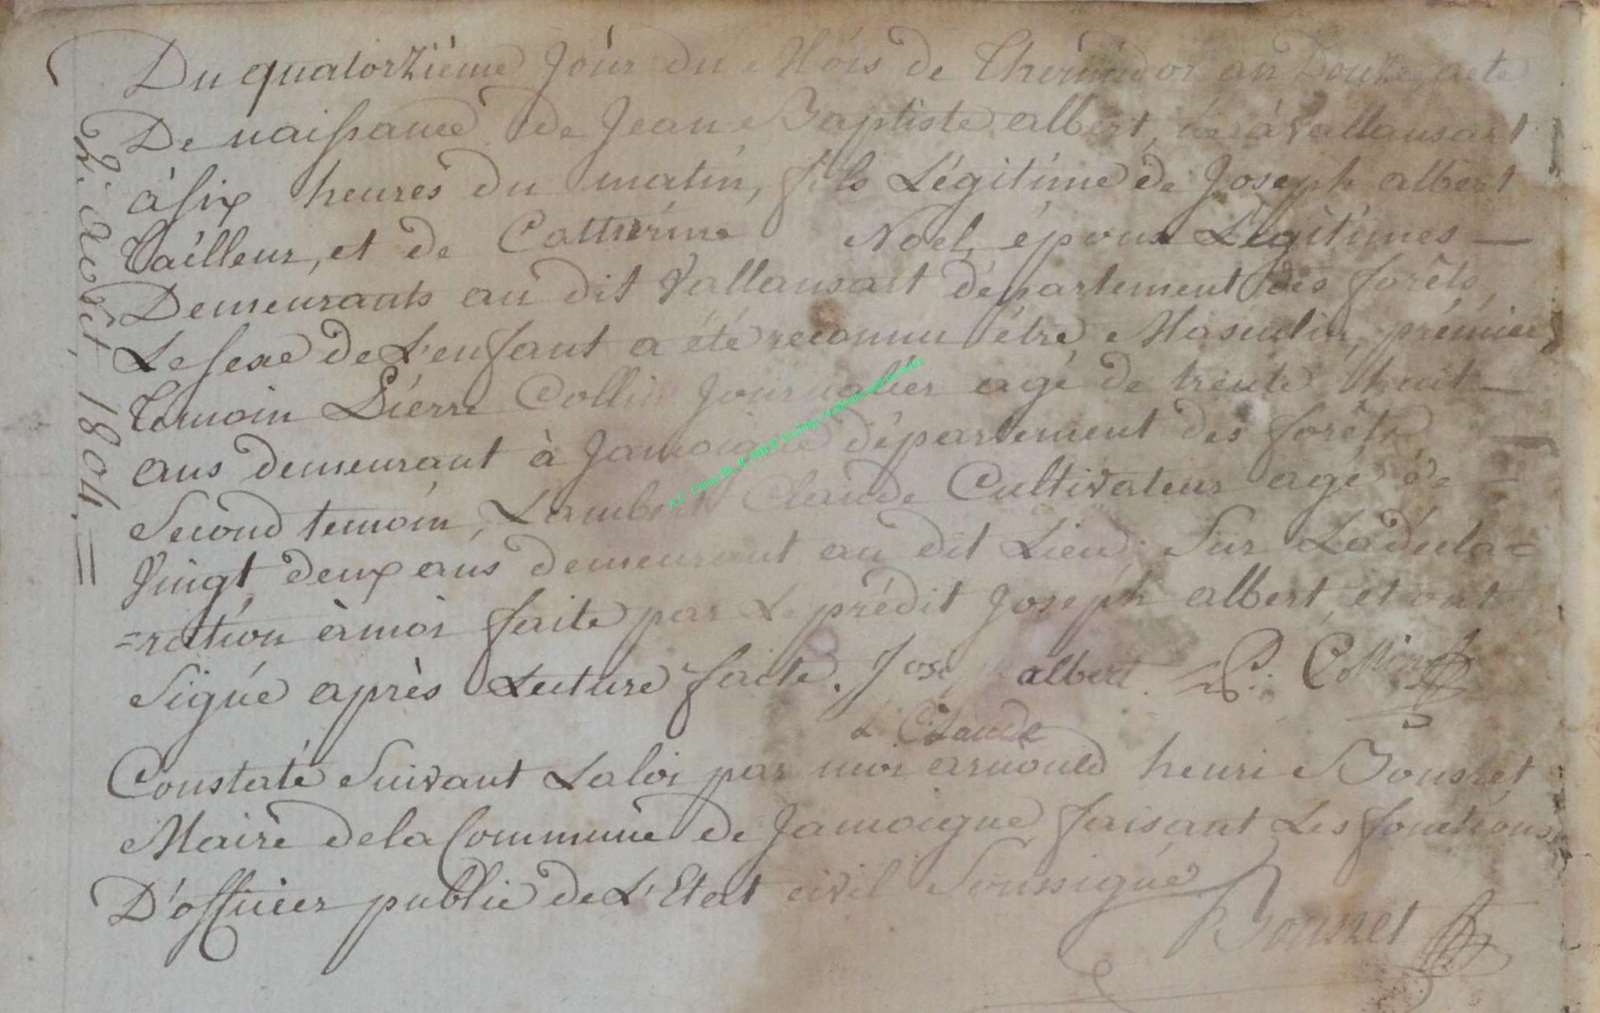 Du quatorzième Jour du Mois de Thermidor an Douze, acte
De naissance de Jean Baptiste albert, né à Vallansart
à six heures du matin, fils Légitime de Joseph albert
Tailleur, et de Catherine Noel, époux Légitimes —
Demeurants au dit Vallansart département des forêts,
Le sexe de L'enfant a été reconnu être Masculin, prémier
Temoin Piérre Collin Journalier agé de trente huit —
ans demeurant à Jamoigne département des forêts
Second temoin, Lambert Claude Cultivateur agé de
Vingt deux ans demeurant au dit Lieu, Sur La décla=
=ration à moi faite par Le prédit Joseph albert, et ont
Signé après Lecture faite. Jose albert. P: Collin
L: Claude
Constaté Suivant La loi par moi arnould henri Bonsret
Maire de la Commune de Jamoigne faisant Les fonctions
D'officier public de L'Etat civil Soussigné
2. Août, 1804. =